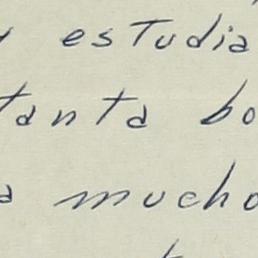 y estudia
tanta bo
a mucho